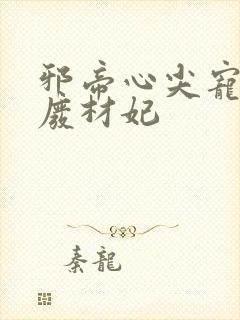 邪帝心尖寵
廢材妃
秦龍